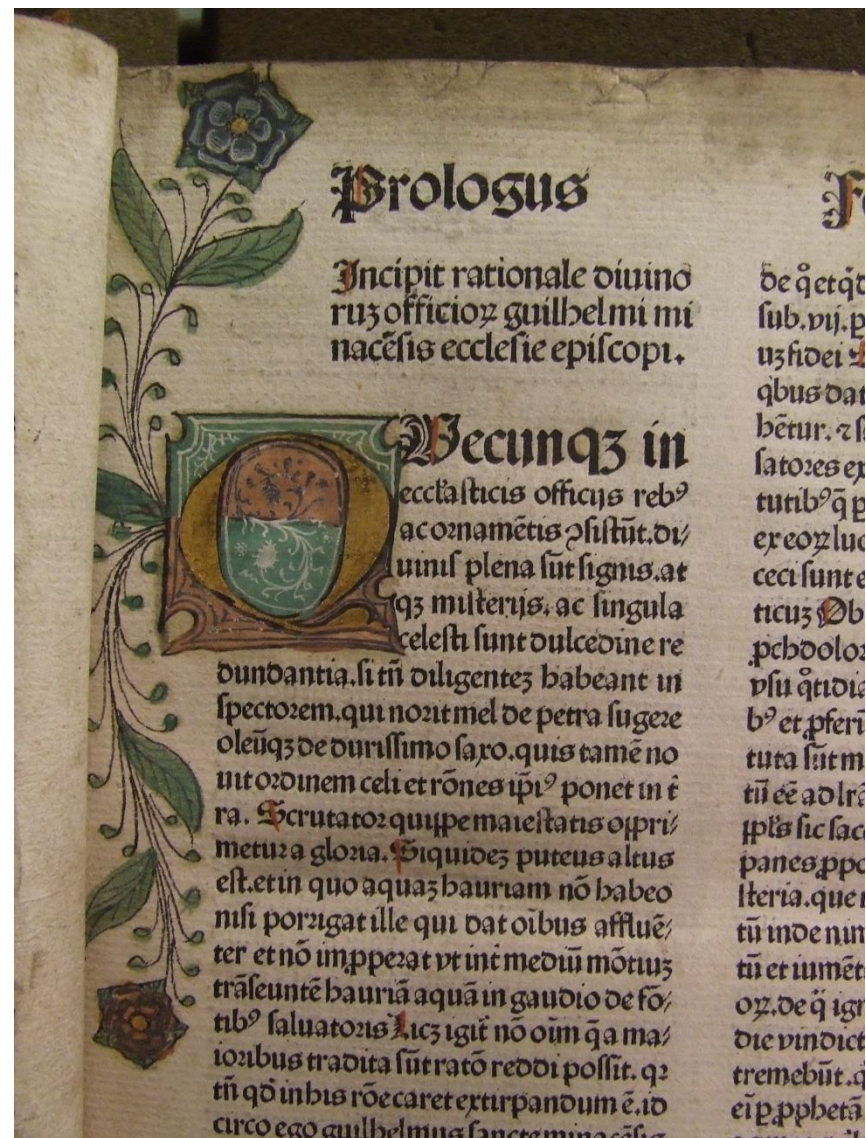 Prologus
Incipit rationale diuino
ruꝫ officioꝝ guilhelmi mi
nacēsis ecclesie episcopi.
Quecunqꝫ in
eccl'asticis officijs rebꝰ
ac ornamētis ꝯsistūt. di/
uinis plena sūt signis. at
qꝫ misterijs. ac singula
celesti sunt dulcedine re
dundantia. si tn̄ diligenteꝫ habeant in
spectorem. qui norit mel de petra sugere
oleūqꝫ de durissimo saxo. quis tamē no
uit ordinem celi et rōnes ip̄iꝰ ponet in t̄
ra. Scrutator quippe maiestatis oppri/
metur a gloria. Siquideꝫ puteus altus
est. et in quo aquaꝫ hauriam nō habeo
nisi porrigat ille qui dat oībus affluē/
ter et nō imꝓperat vt int̄ mediū mōtiuꝫ
trāseuntē hauriā aquā in gaudio de fō/
tibꝰ saluatoris Licꝫ igit̄ nō oīm q̄ a ma/
ioribus tradita sūt ratō reddi possit. qꝛ
tn̄ qd̄ in his rōe caret extirpandum ē. id
circo ego guilhelmus sancte minacēsis
de q̊ et qd̄
sub. vij. p
uꝫ fidei
qbus dat
bētur. ⁊ s
satores ex
tutibꝰ q̄ p
ex eoꝝ luc
ceci sunt e
ticuꝫ Ob
ꝓch dolor
vsu q̊tidia
bꝰ et ꝓferi
tuta sūt m
tū eē ad lrā
sic sac
panes ꝓpo
steria. que
tū inde nun
tū et iumēt
oꝝ. de q̄ ign
die vindict
tremebūt. q
eīp. ꝓphetā